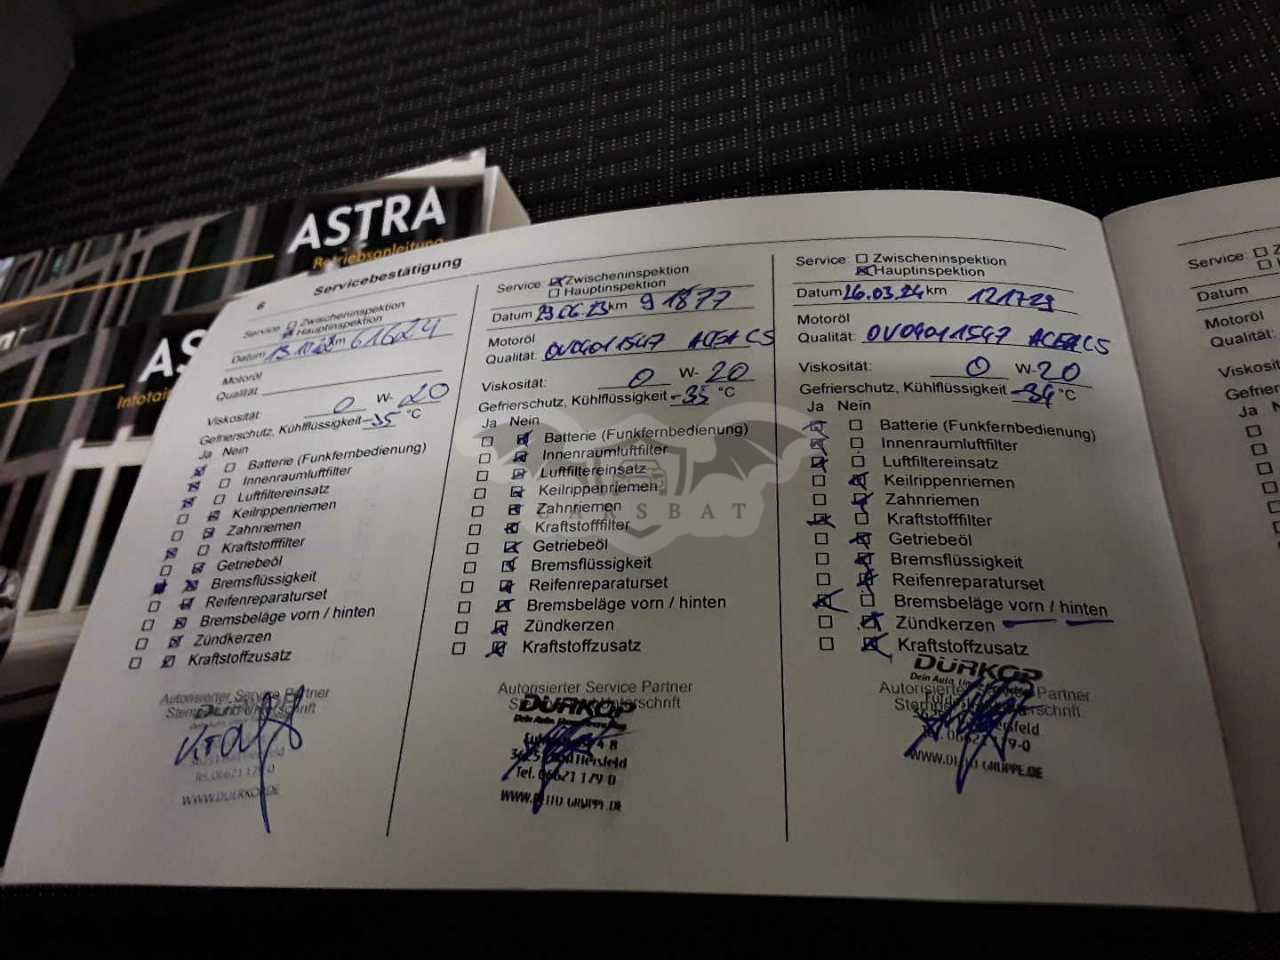 ASTRA
Betriebsanleitung
6
Servicebestätigung
Service: Zwischeninspektion
Hauptinspektion
Datum km 61624
Motoröl
Qualität:
Viskosität: 0 W- 20
Gefrierschutz, Kühlflüssigkeit -35 °C
Ja Nein
Batterie (Funkfernbedienung)
Innenraumluftfilter
Luftfiltereinsatz
Keilrippenriemen
Zahnriemen
Kraftstofffilter
Getriebeöl
Bremsflüssigkeit
Reifenreparaturset
Bremsbeläge vorn / hinten
Zündkerzen
Kraftstoffzusatz
Autorisierter Service Partner
Tel. 06621 179-0
WWW.DUERKOP.DE
Service: Zwischeninspektion
Hauptinspektion
Datum 29.06.23 km 91877
Motoröl
Qualität: OV0401547 ACEA C5
Viskosität: 0 W- 20
Gefrierschutz, Kühlflüssigkeit -35 °C
Ja Nein
Batterie (Funkfernbedienung)
Innenraumluftfilter
Luftfiltereinsatz
Keilrippenriemen
Zahnriemen
Kraftstofffilter
Getriebeöl
Bremsflüssigkeit
Reifenreparaturset
Bremsbeläge vorn / hinten
Zündkerzen
Kraftstoffzusatz
Autorisierter Service Partner
DÜRKOP
Tel. 06621 179-0
Service: Zwischeninspektion
Hauptinspektion
Datum 26.03.24 km 121729
Motoröl
Qualität: OV0401547 ACEA C5
Viskosität: 0 W- 20
Gefrierschutz, Kühlflüssigkeit -34 °C
Ja Nein
Batterie (Funkfernbedienung)
Innenraumluftfilter
Luftfiltereinsatz
Keilrippenriemen
Zahnriemen
Kraftstofffilter
Getriebeöl
Bremsflüssigkeit
Reifenreparaturset
Bremsbeläge vorn / hinten
Zündkerzen
Kraftstoffzusatz
DÜRKOP
Autorisierter Service Partner
Service:
Datum
Motoröl
Qualität:
Ja
CARSBAT